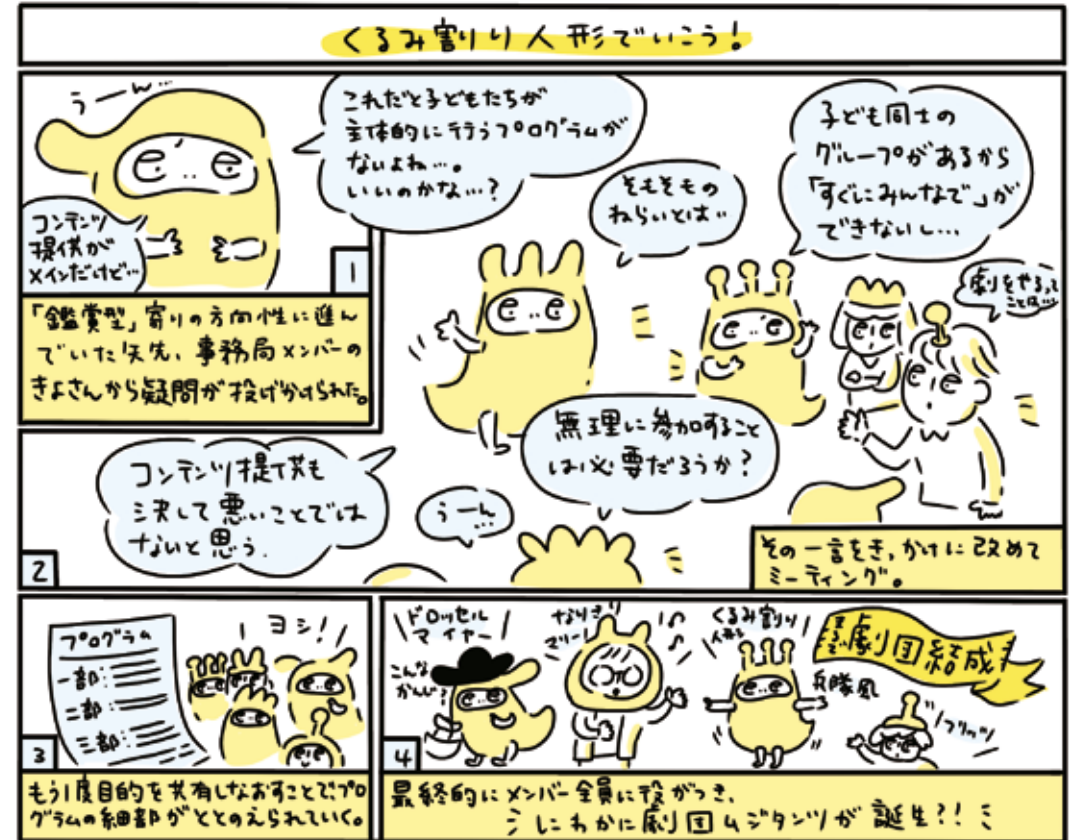 くるみ割り人形でいこう!
うーん…
これだと子どもたちが
主体的に行うプログラムが
ないよね…。
いいのかな…?
コンテンツ
提供が
メインだけど…
1
「鑑賞型」寄りの方向性に進ん
でいた矢先、事務局メンバーの
きよさんから疑問が投げかけられた。
そもそもの
ねらいとは…
子ども同士の
グループがあるから
「すぐにみんなで」が
できないし…
劇をやるって
ことは…
無理に参加すること
は必要だろうか?
コンテンツ提供も
決して悪いことでは
ないと思う.
うーん
…
2
その一言をきっかけに改めて
ミーティング。
プログラム
一部:
二部:
三部:
ヨシ!
3
もう1度目的を共有しなおすことで、プロ
グラムの細部がととのえられていく。
ドロッセル
マイヤー
こんな
かんじ?
なりきり
マリー
くるみ割り
人形
兵隊風
まるで
劇団結成
フリッツ
4
最終的にメンバー全員に役がつき、
にわかに劇団ムジタンツが誕生?!